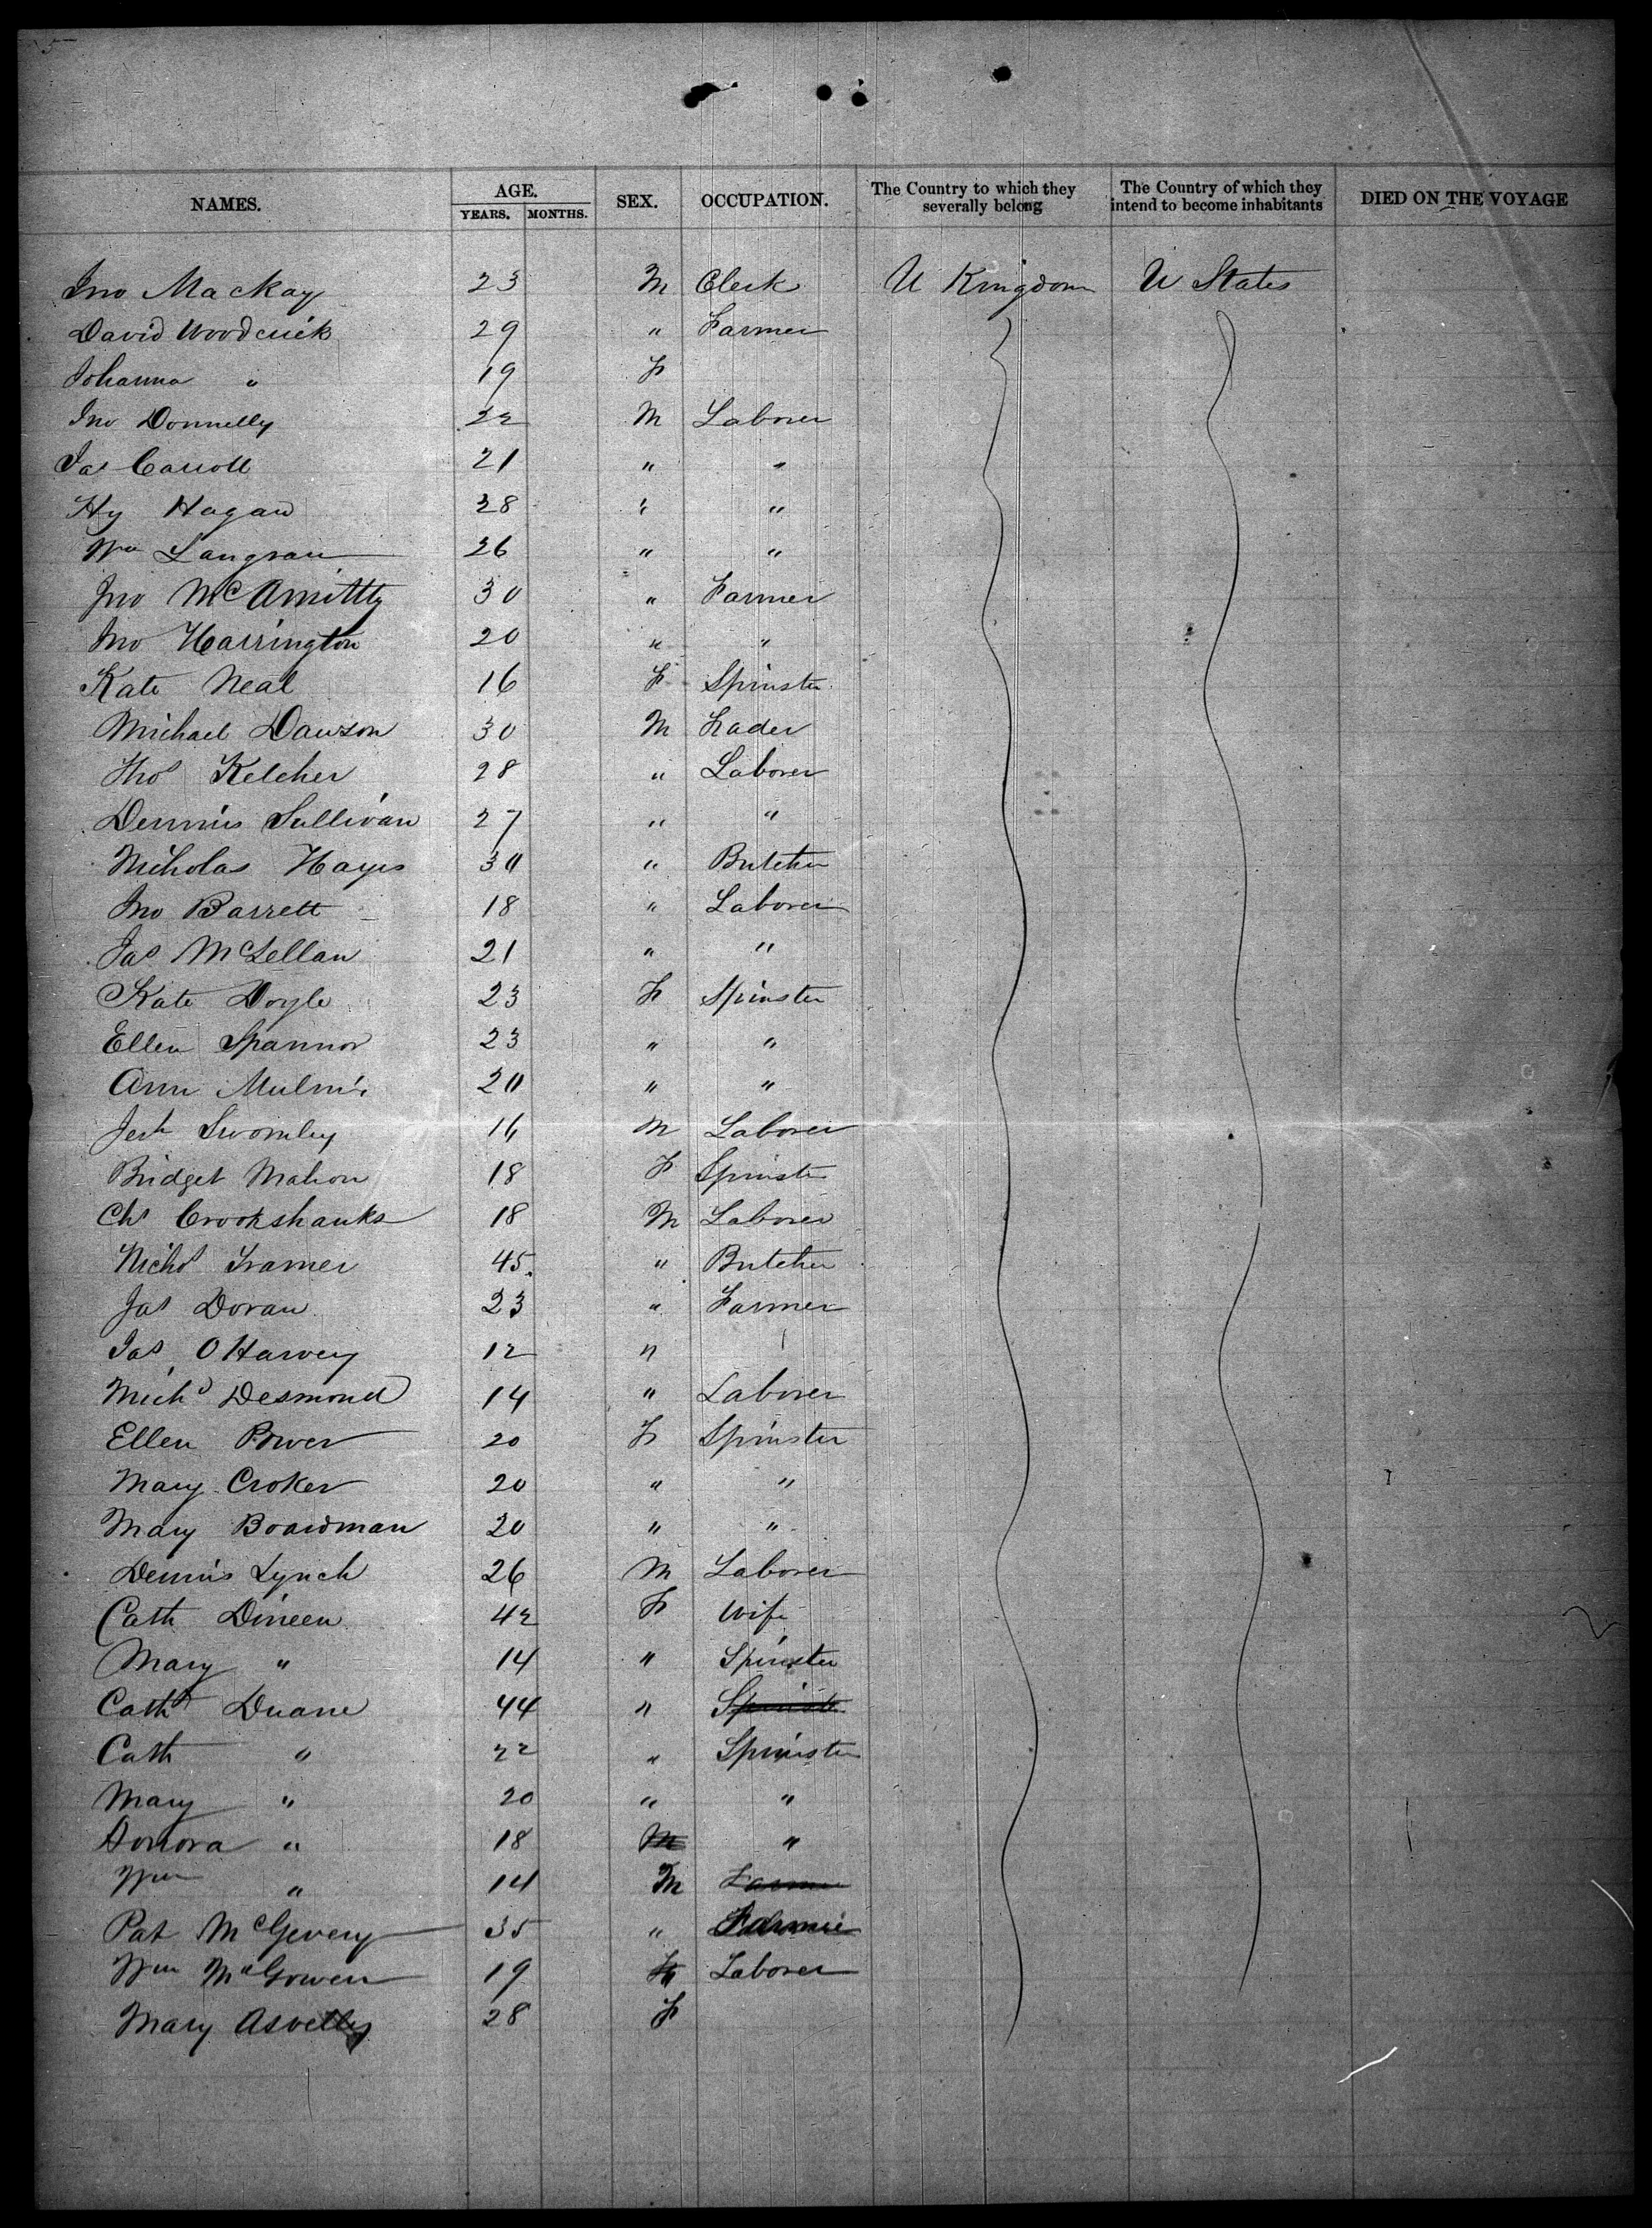 NAMES. AGE. YEARS. MONTHS. SEX. OCCUPATION. The Country to which they severally belong The Country of which they intend to become inhabitants DIED ON THE VOYAGE
Jno Mackay 23 M Clerk U Kingdom U States
David Woodcuik 29 " Farmer
Johanna " 19 F
Jno Donnelly 22 M Laborer
Jas Carroll 21 " "
Hy Hagan 38 " "
Wm Langran 26 " "
Jno McAmittty 30 " Farmer
Jno Harrington 20 " "
Kate Neal 16 F Spinster
Michael Dawson 30 M
Thos Kelcher 28 " Laborer
Dennis Sullivan 27 " "
Nicholas Hayes 30 " Butcher
Jno Barrett 18 " Laborer
Jas McLellan 21 " "
Kate Doyle 23 F Spinster
Ellen Spannor 23 " "
Ann 20 " "
16 M Laborer
Bridget Mahon 18 F Spinster
Chs Crookshanks 18 M Laborer
Nichs 45 " Butcher
Jas Doran 23 " Farmer
Jas O Harvey 12 "
Michl Desmond 14 " Laborer
Ellen Power 20 F Spinster
Mary Croker 20 " "
Mary Boardman 20 " "
Dennis Lynch 26 M Laborer
Cath Dineen 42 F Wife
Mary " 14 " Spinster
Cath Duane 44 " Spinster
Cath " 22 " Spinster
Mary " 20 " "
Honora " 18 M "
Wm " 14 M Farmer
Pat McGevery 35 "
Wm McGowen 19 Laborer
Mary 28 F